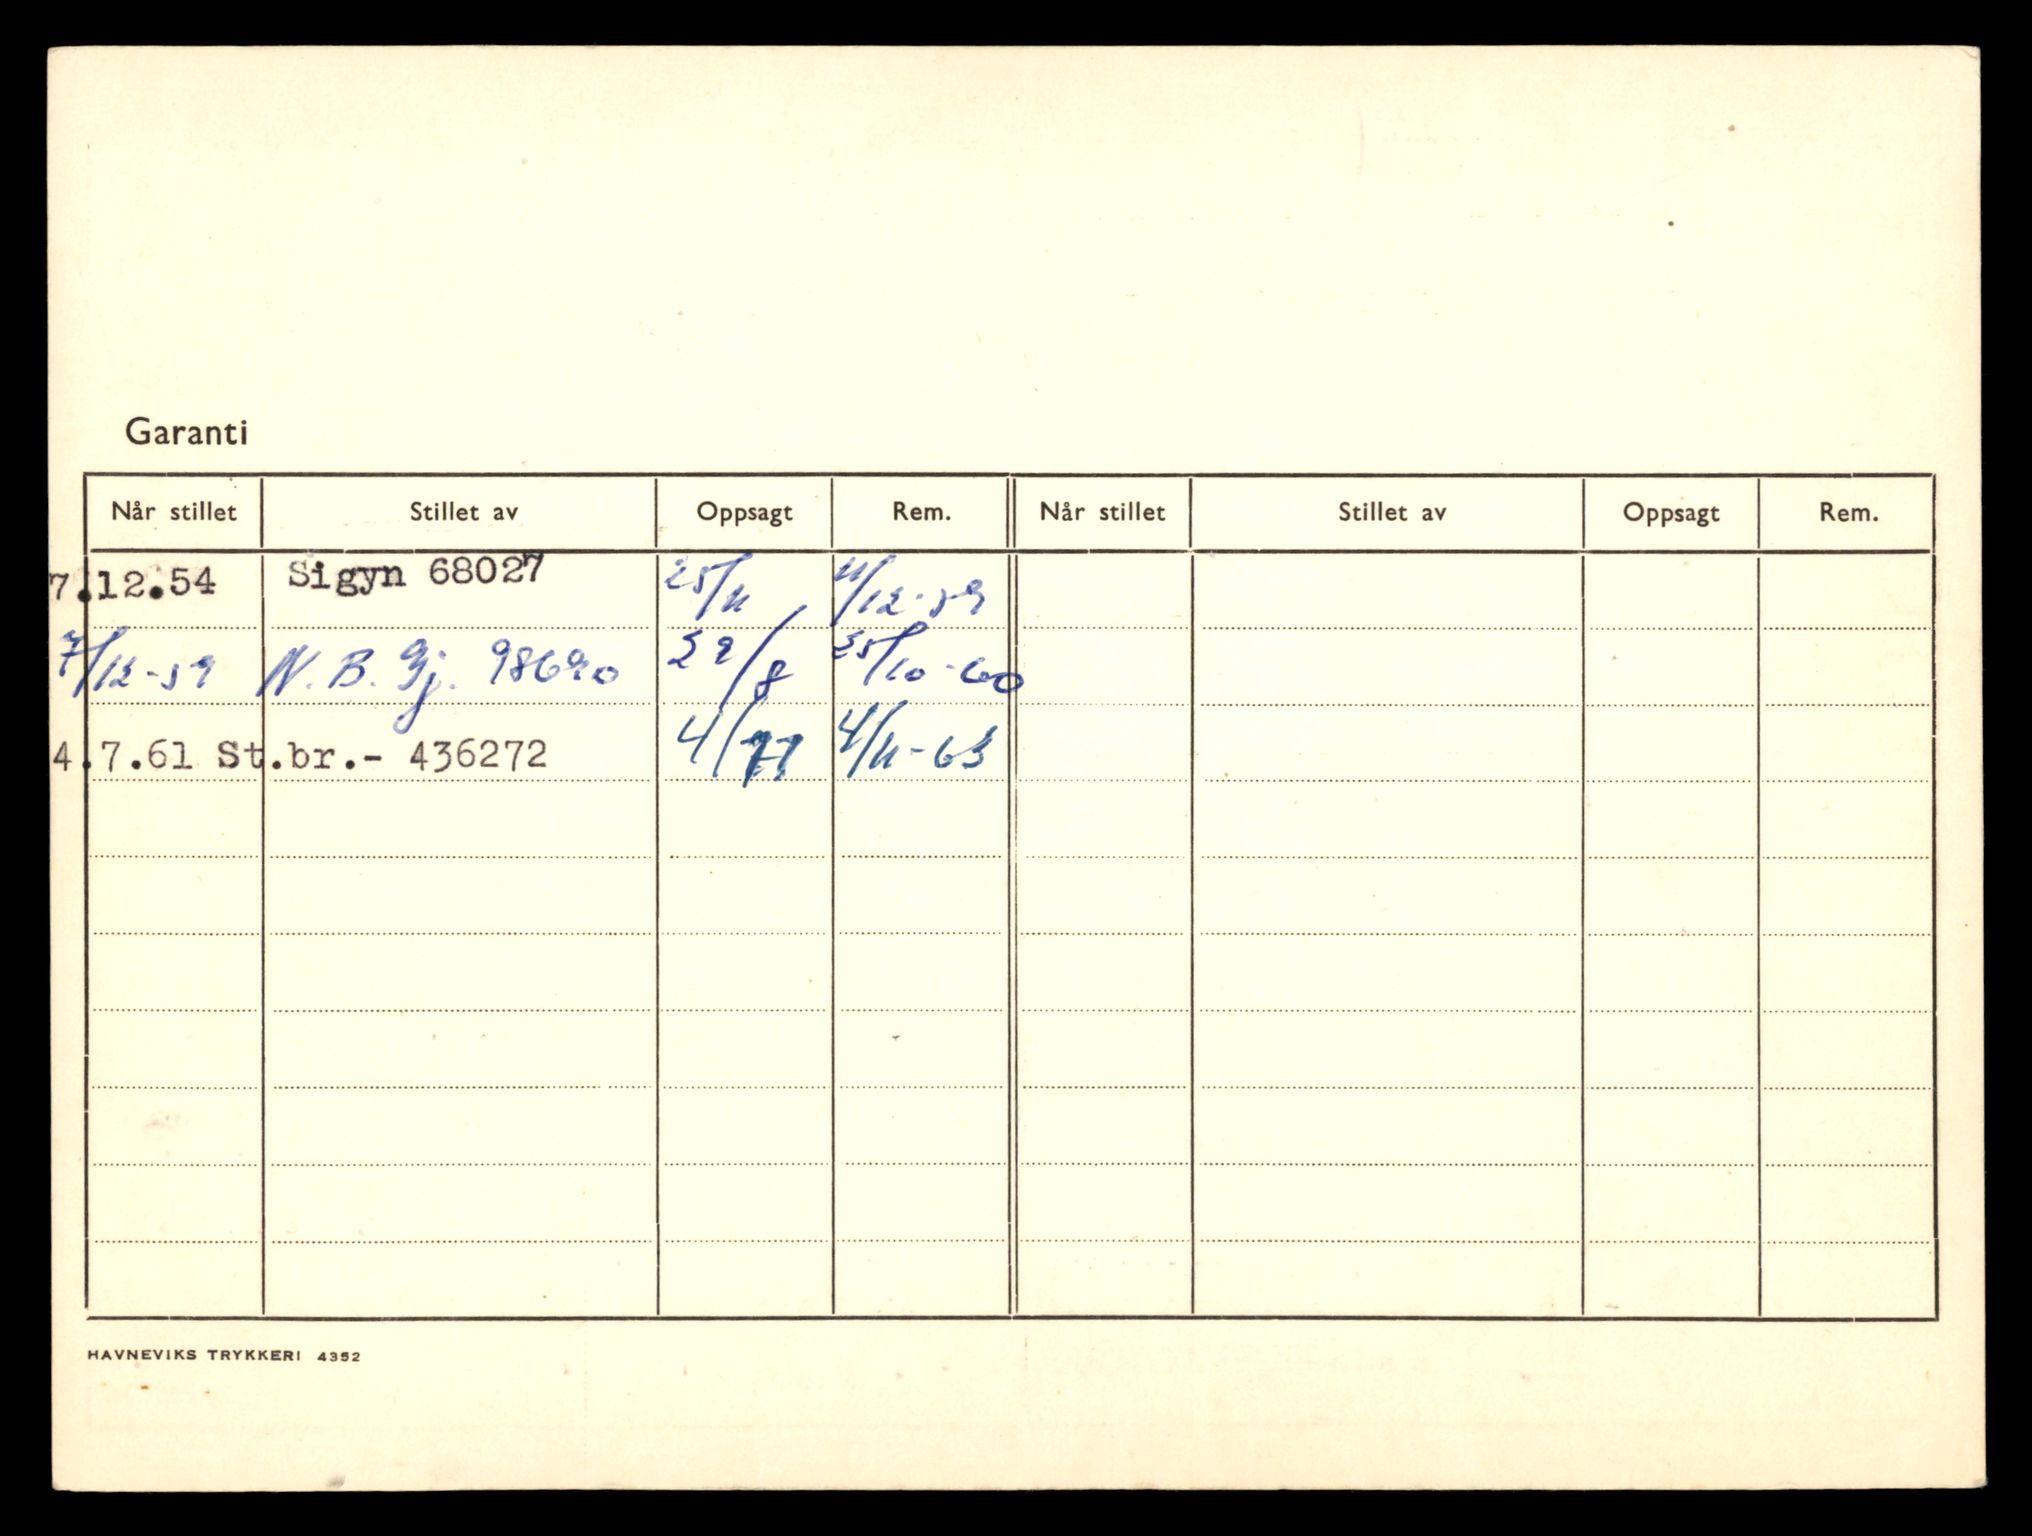 Garanti
Når stillet Stillet av Oppsagt Rem. Når stillet Stillet av Oppsagt Rem.
7.12.54 Sigyn 68027 25/11 11/12-59
7/12-59 N.B. Gj. 98690 29/8 25/10-60
4.7.61 St.br.- 436272 4/11 4/11-63
HAVNEVIKS TRYKKERI 4352